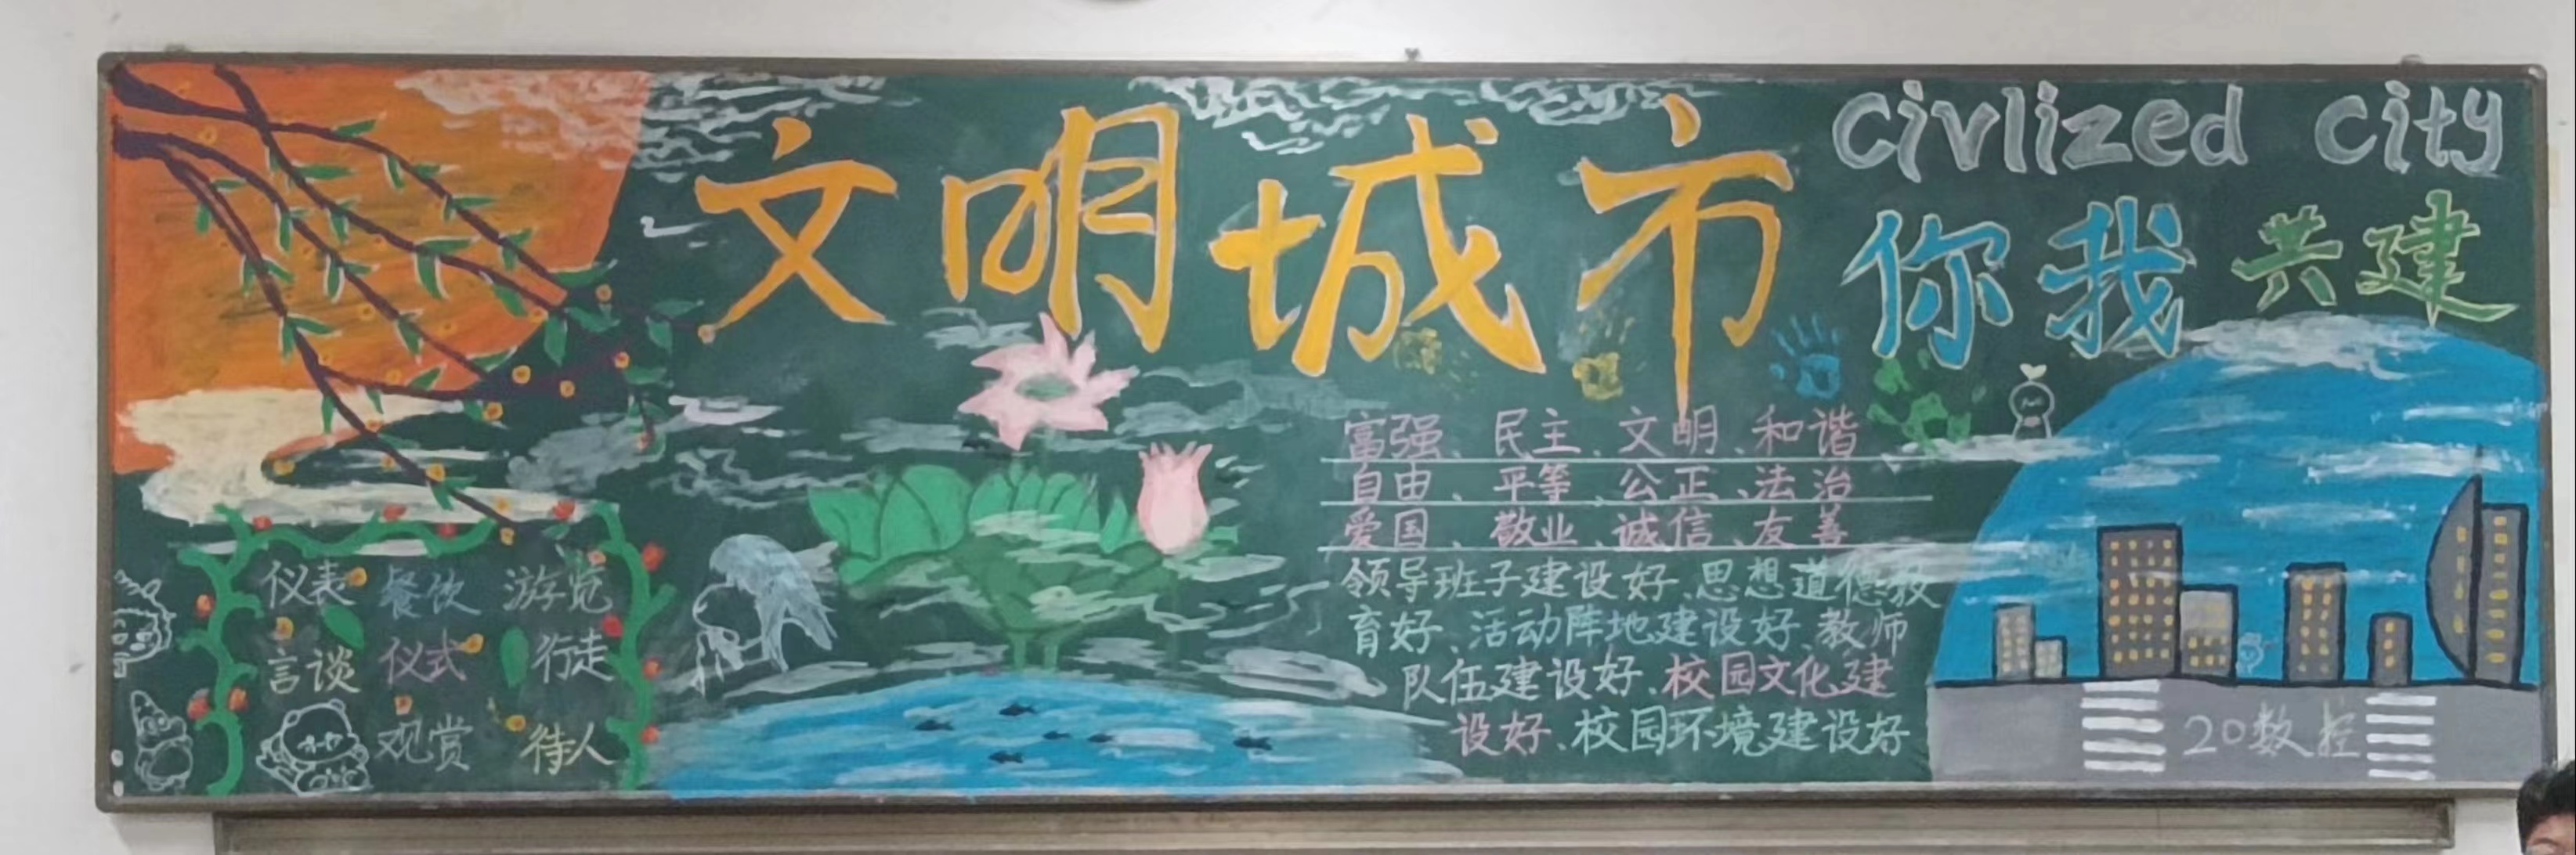 文明城市
civlized city
你我共建
富强、民主、文明、和谐
自由、平等、公正、法治
爱国、敬业、诚信、友善
领导班子建设好、思想道德教
育好、活动阵地建设好、教师
队伍建设好、校园文化建
设好、校园环境建设好
仪表 餐饮 游览
言谈 仪式 行走
观赏 待人
20数控